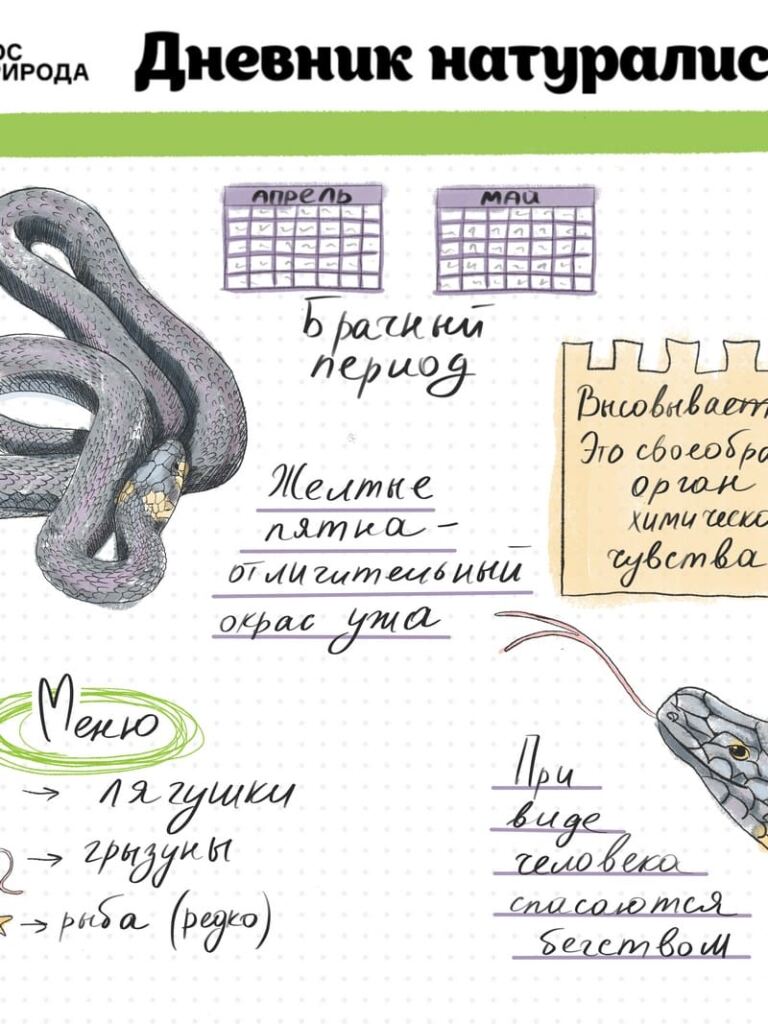 ОС
ИРОДА
Дневник натуралис
АПРЕЛЬ
МАЙ
Брачный
период
Высовывает
Это своеобра
орган
химическо
чувства
Желтые
пятна –
отличительный
окрас ужа
Меню
→ лягушки
→ грызуны
→ рыба (редко)
При
виде
человека
спасаются
бегством